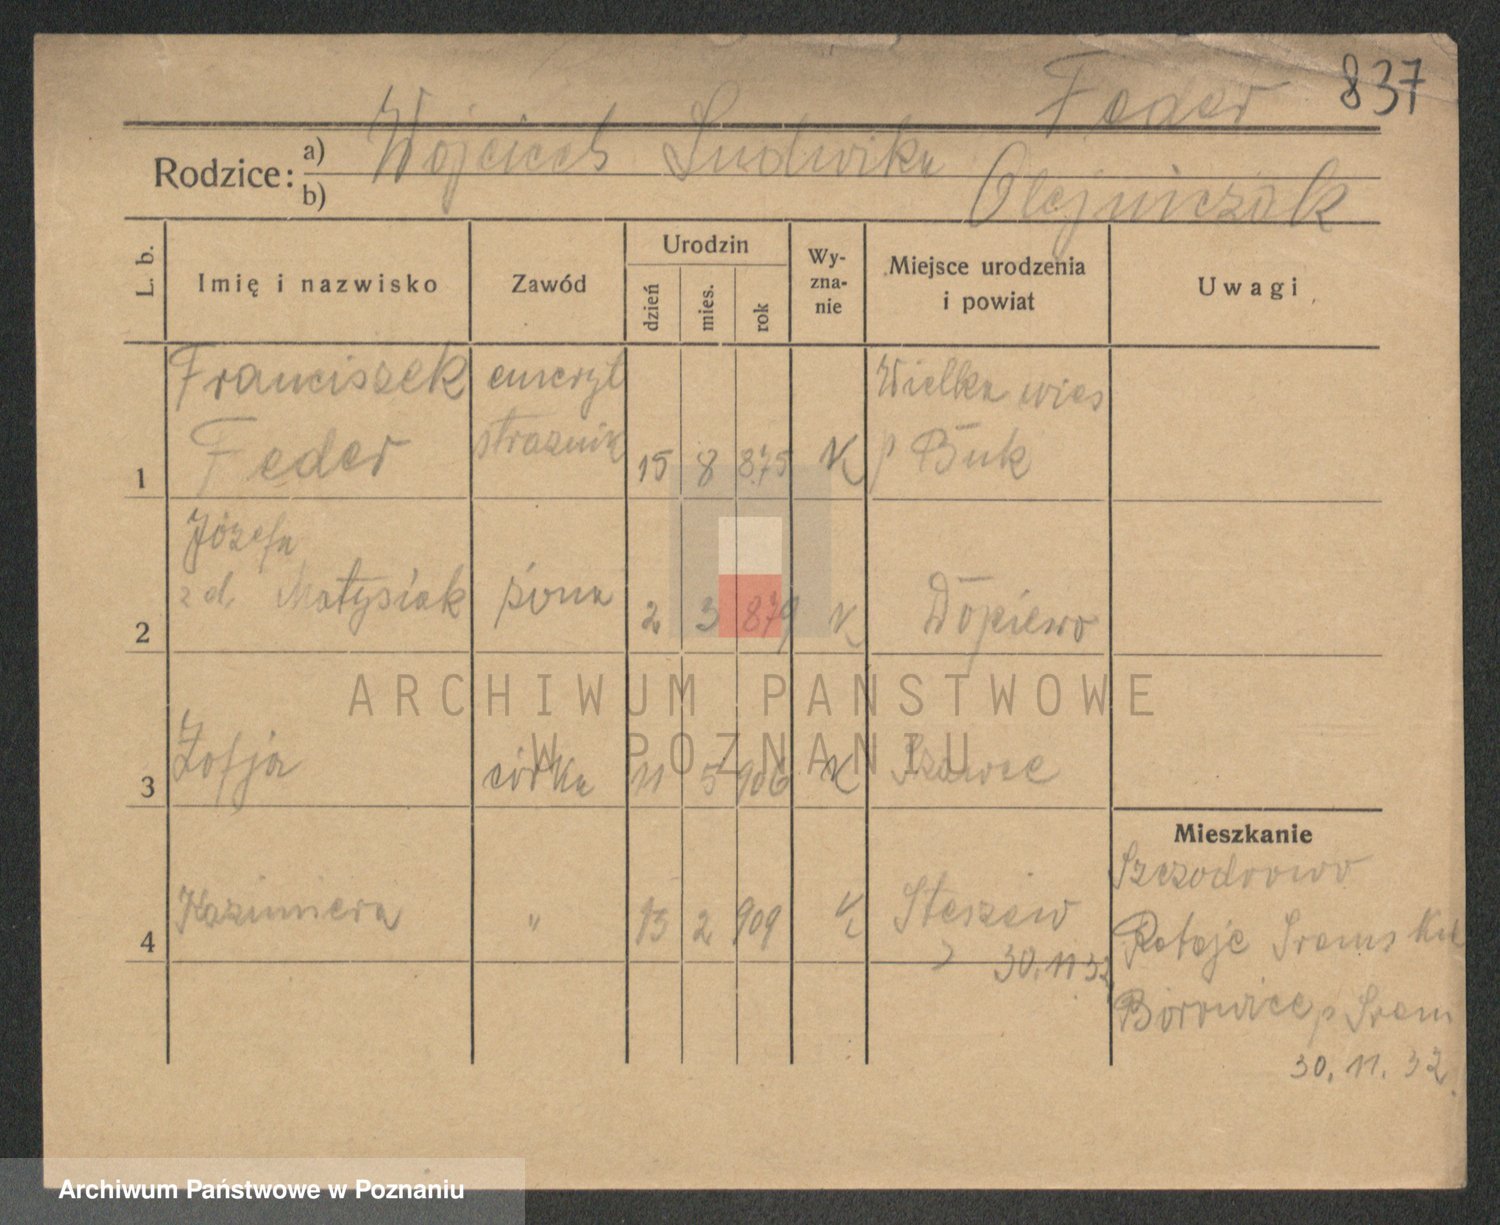 Feder 837
Rodzice: a) Wojciech Ludwika
b) Olejniczak
L. b.
Imię i nazwisko
Zawód
Urodzin
dzień
mies.
rok
Wy-
zna-
nie
Miejsce urodzenia
i powiat
Uwagi
Franciszek emeryt Wielka wies
1 Feder straznik 15 8 875 K p Buk
Józefa
2 z d. Matysiak żona 2 3 879 K Dopiewo
3 Zofja córka 11 5 906 K
4 Kazimiera " 13 2 909 K Steszew
30.11 32
Mieszkanie
Szczodrowo
Rataje Srems
Borowiec p Srem
30. 11. 32.
ARCHIWUM PAŃSTWOWE
W POZNANIU
Archiwum Państwowe w Poznaniu